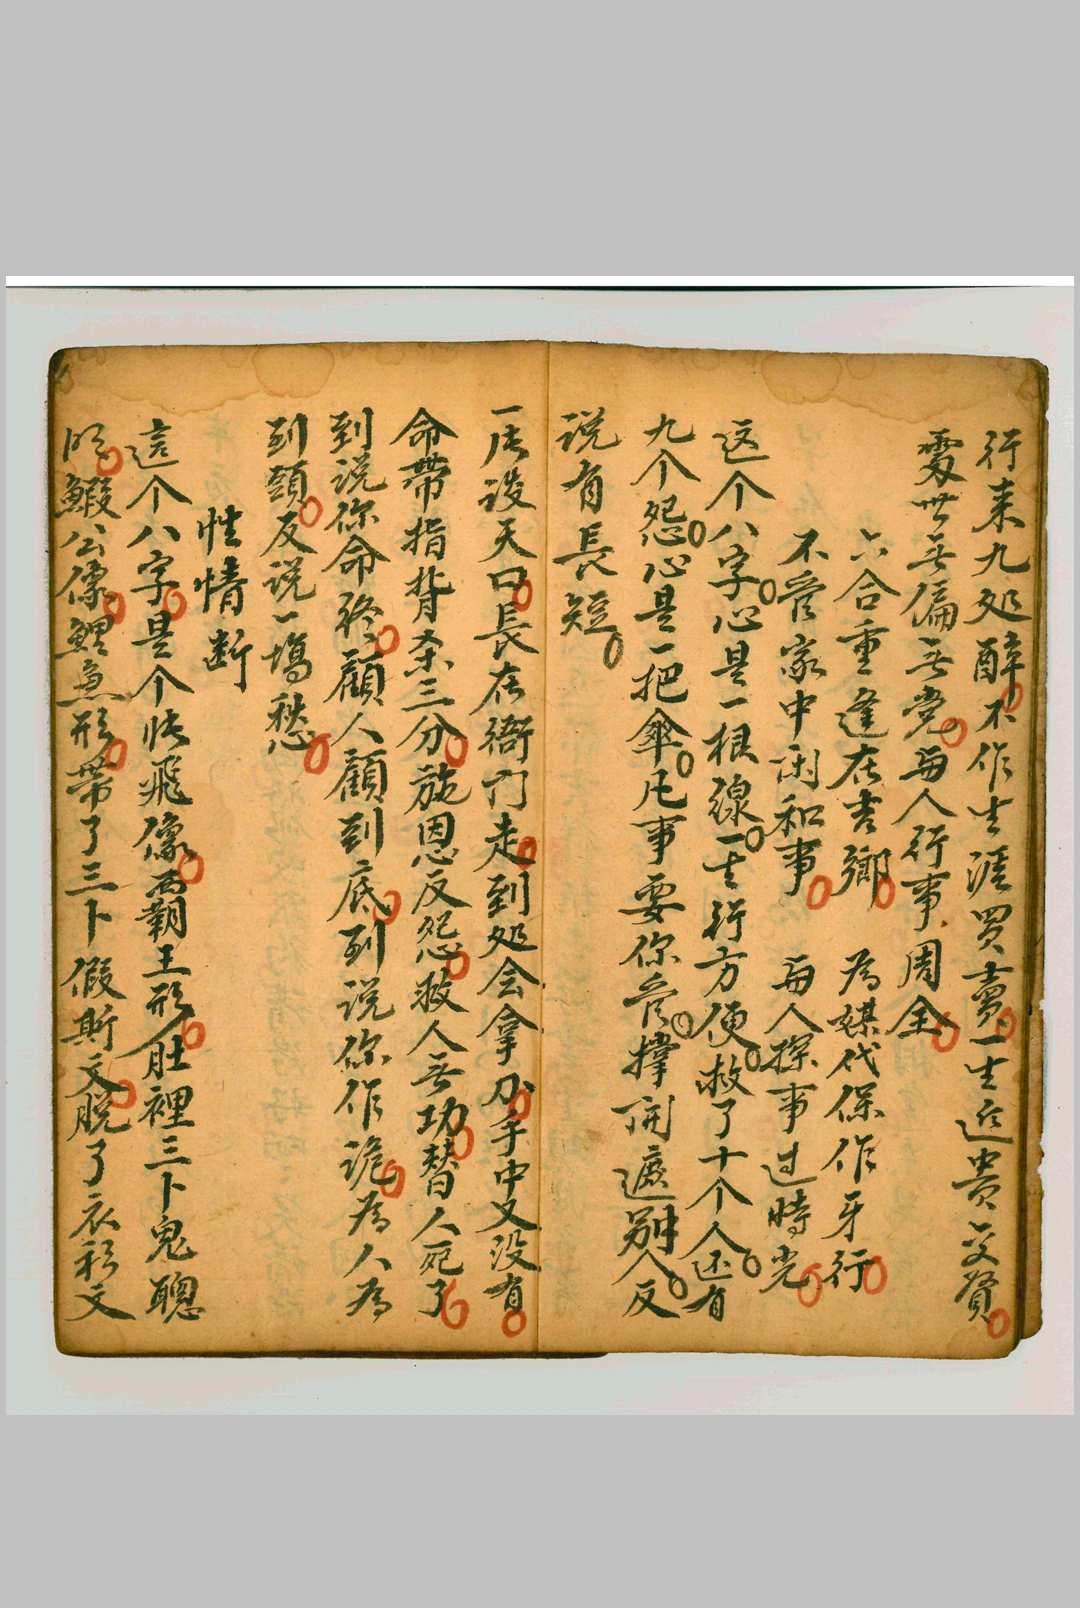 行来九处醉不作生涯買賣一生近貴交賢
處世无偏无党与人行事周全
六合重逢在吉鄉 為媒代保作牙行
不管家中闲和事 与人探事过時光
这个八字心是一根線一生行方便救了十个人还有
九个怨心是一把傘凡事要你管撑開遮别人反
说有長短
一店设天口長在衙门走到处会拿刀手中又没有
命帶指背杀三分施恩反怨救人无功替人死了
到说你命終顧人顧到底到说你作詭為人為
到頭反说一塲愁
性情断
這个八字是个性飛像霸王形肚裡三卜鬼聰
明鰕公像鯉魚形带了三卜假斯文脱了衣衫文